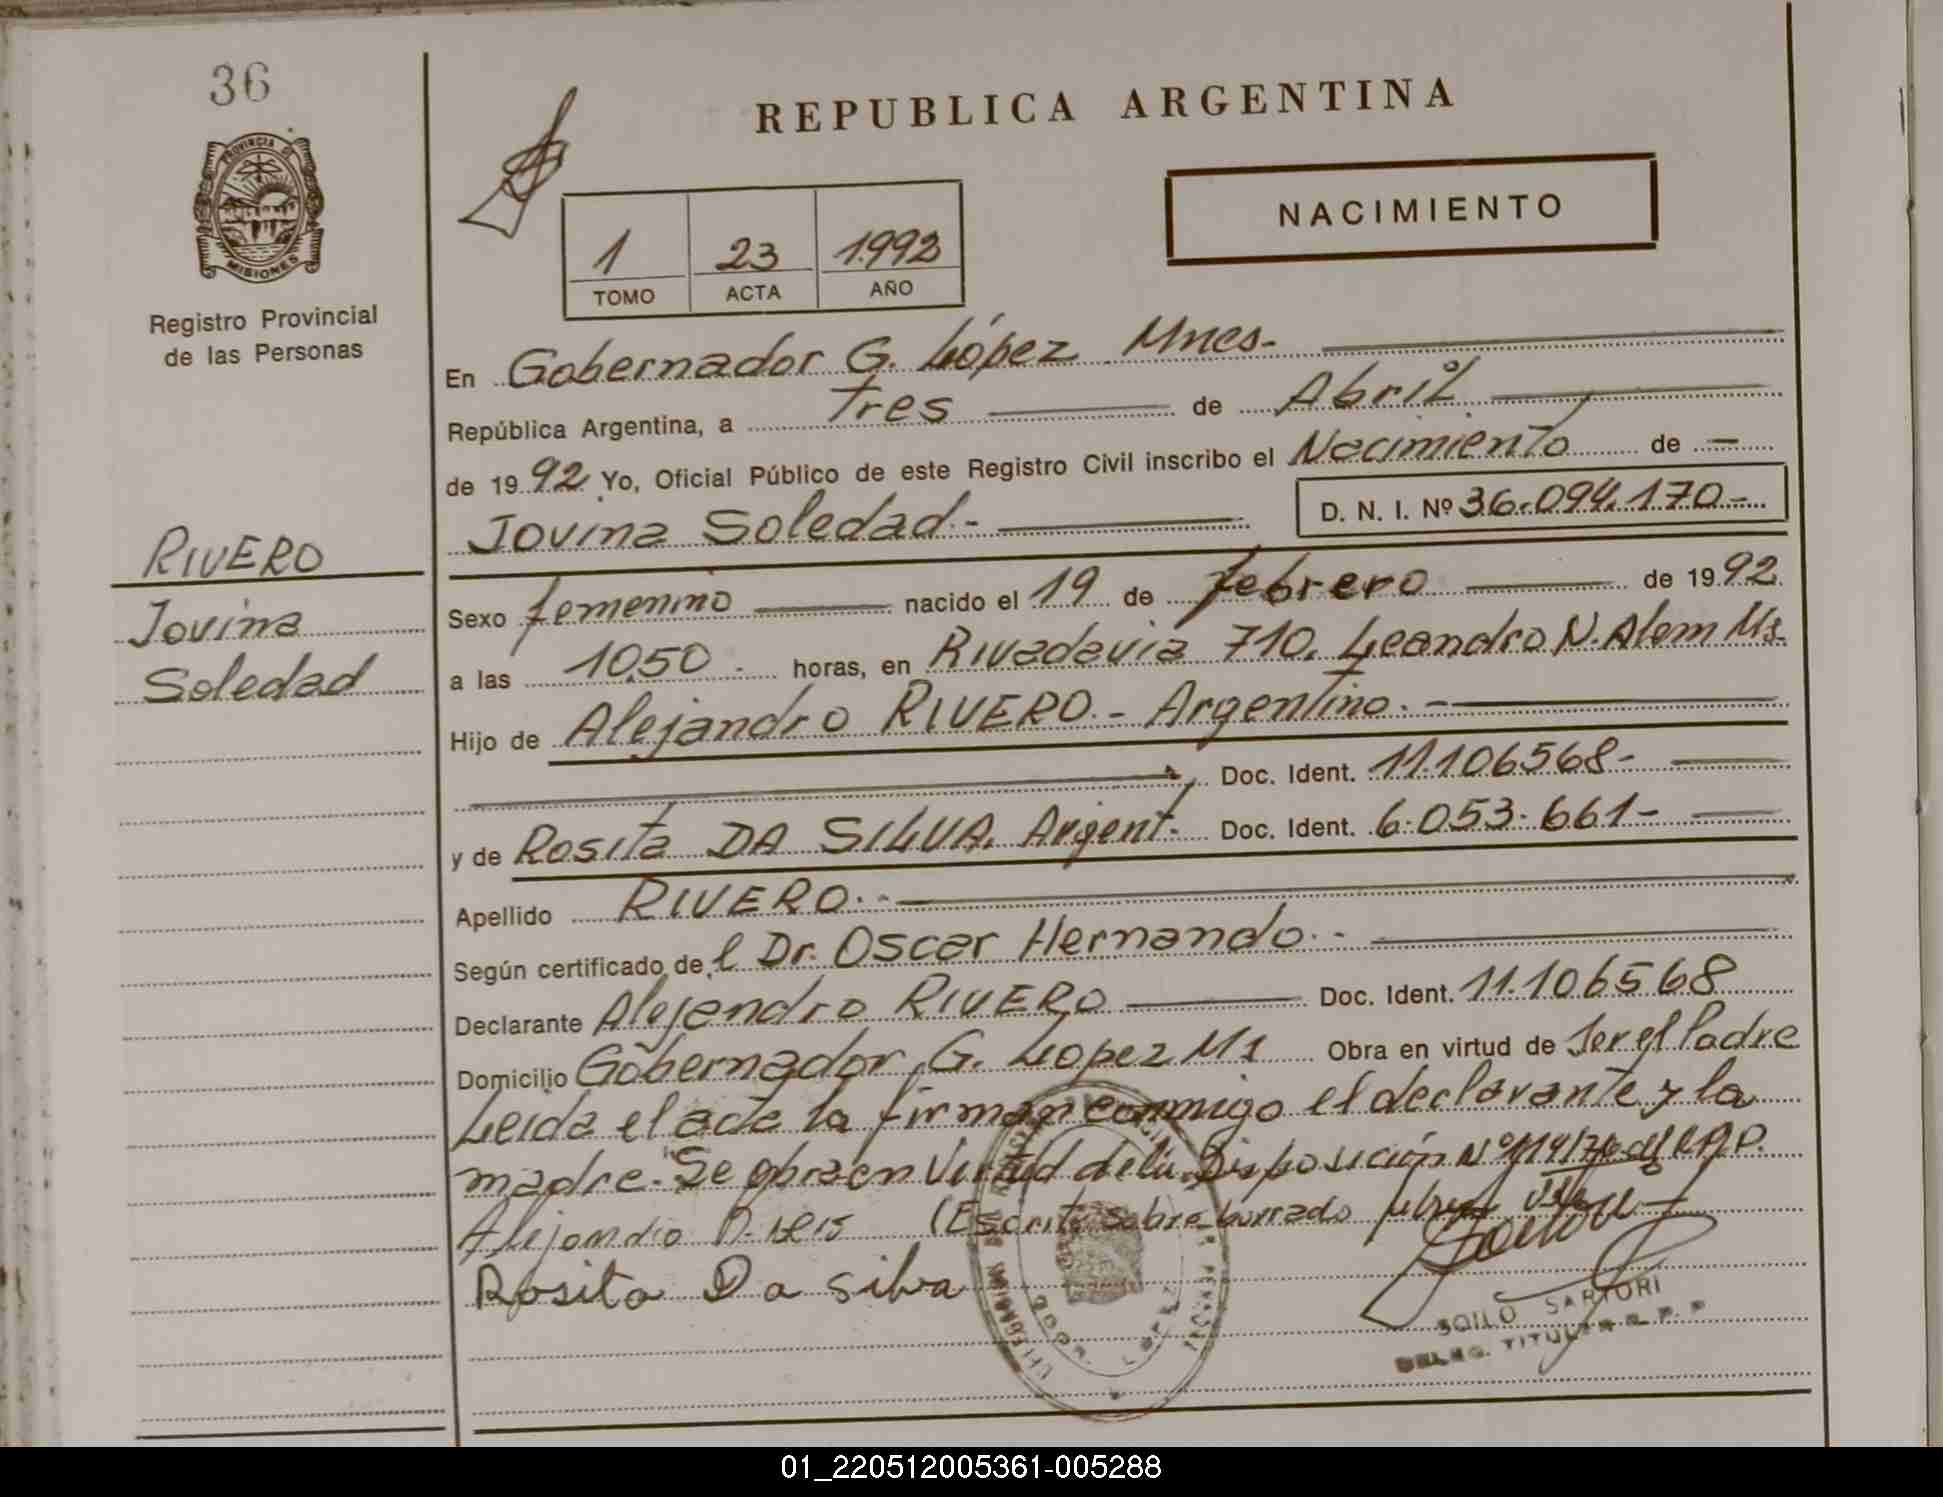 36
REPUBLICA ARGENTINA
PROVINCIA DE
MISIONES
Registro Provincial
de las Personas
NACIMIENTO
1 23 1992
TOMO ACTA AÑO
En Gobernador G. López Mnes.-
República Argentina, a tres de Abril
de 1992 Yo, Oficial Público de este Registro Civil inscribo el Nacimiento de -
Jovina Soledad.- D. N. I. Nº 36.094.170-
RIVERO
Jovina
Soledad
Sexo femenino nacido el 19 de febrero de 1992
a las 10,50 horas, en Rivadavia 710. Leandro N. Alem Ms.
Hijo de Alejandro RIVERO.- Argentino.-
Doc. Ident. 11.106568-
y de Rosita DA SILVA. Argent. Doc. Ident. 6.053.661-
Apellido RIVERO.-
Según certificado de l Dr. Oscar Hernando.-
Declarante Alejandro RIVERO Doc. Ident. 11.106568
Domicilio Gobernador G. Lopez Ms Obra en virtud de Ser el Padre
Leida el acta la firman conmigo el declarante y la
madre. Se obra en Virtud de la Disposición Nº
Alejandro (Escrito sobre borrado febrero
Rosita Da silva
GDOR. LOPEZ
SOILO SARTORI
DELEG. TITULAR R. P. P.
01_220512005361-005288